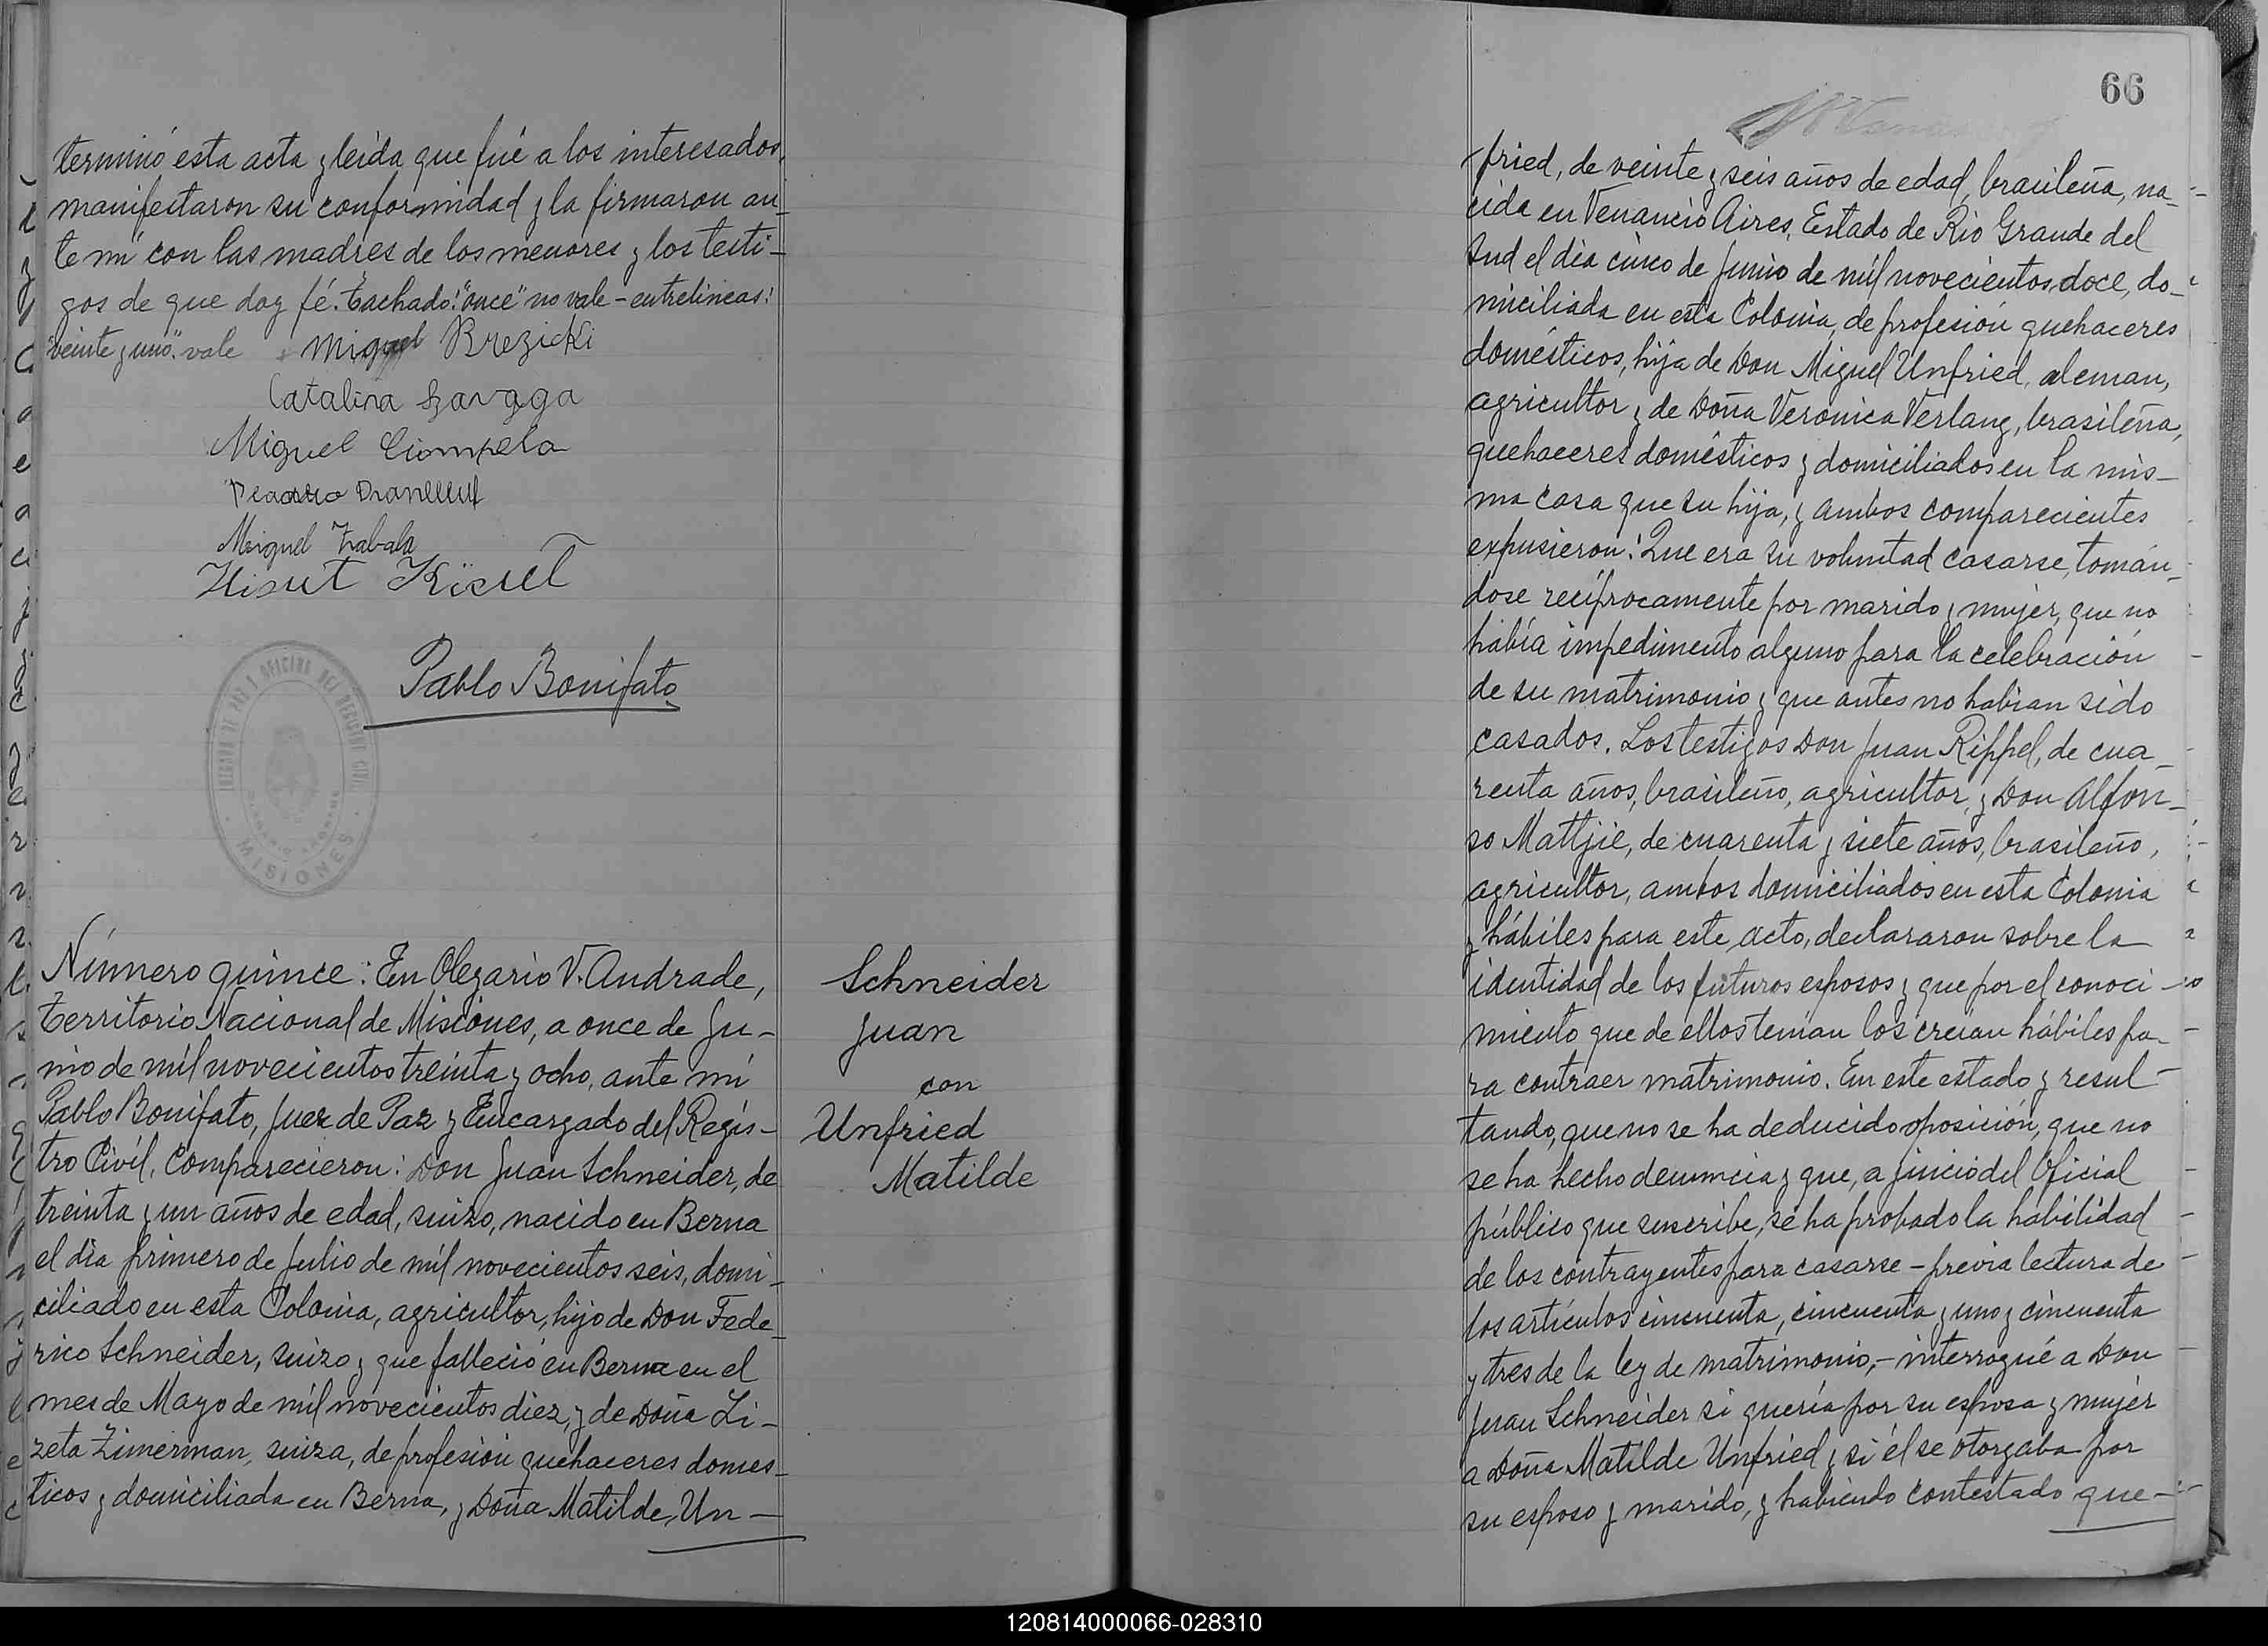 terminó esta acta y leída que fué a los interesados,
manifestaron su conformidad y la firmaron an-
te mí con las madres de los menores y los testi-
gos de que doy fé. Tachado: "once" no vale - entrelineas:
"veinte y uno". vale Miguel Brezicki
Catalina
Miguel Ciompela
Miguel Zabala
Pablo Bonifato
JUZGADO DE PAZ Y OFICINA DEL REGISTRO CIVIL
MISIONES
Número quince: En Olegario V. Andrade,
Territorio Nacional de Misiones, a once de Ju-
nio de mil novecientos treinta y ocho, ante mí
Pablo Bonifato, Juez de Paz y Encargado del Regis-
tro Civil, Comparecieron: Don Juan Schneider, de
treinta y un años de edad, suizo, nacido en Berna
el día primero de Julio de mil novecientos seis, domi-
ciliado en esta Colonia, agricultor, hijo de Don Fede-
rico Schneider, suizo y que falleció en Berna en el
mes de Mayo de mil novecientos diez, y de Doña Li-
zeta Zimerman, suiza, de profesión quehaceres domes-
ticos y domiciliada en Berna, y Doña Matilde, Un-
Schneider
Juan
con
Unfried
Matilde
66
fried, de veinte y seis años de edad, brasileña, na-
cida en Venancio Aires, Estado de Rio Grande del
Sud el día cinco de Junio de mil novecientos doce, do-
miciliada en esta Colonia, de profesión quehaceres
domésticos, hija de Don Miguel Unfried, aleman,
agricultor y de Doña Veronica Verlang, brasileña,
quehaceres domésticos y domiciliados en la mis-
ma casa que su hija, y ambos comparecientes
expusieron: Que era su voluntad casarse, tomán-
dose recíprocamente por marido y mujer, que no
había impedimento alguno para la celebración
de su matrimonio y que antes no habian sido
casados. Los testigos Don Juan Rippel, de cua-
renta años, brasileño, agricultor, y Don Alfon-
so Mattjie, de cuarenta y siete años, brasileño,
agricultor, ambos domiciliados en esta Colonia
y hábiles para este acto, declararon sobre la
identidad de los futuros esposos y que por el conoci-
miento que de ellos tenían los creían hábiles pa-
ra contraer matrimonio. En este estado y resul-
tando, que no se ha deducido oposición, que no
se ha hecho denuncia y que, a juicio del Oficial
público que suscribe, se ha probado la habilidad
de los contrayentes para casarse - previa lectura de
los artículos cincuenta, cincuenta y uno y cincuenta
y tres de la ley de matrimonio, - interrogué a Don
Juan Schneider si quería por su esposa y mujer
a Doña Matilde Unfried y si él se otorgaba por
su esposo y marido, y habiendo contestado que-
120814000066-028310